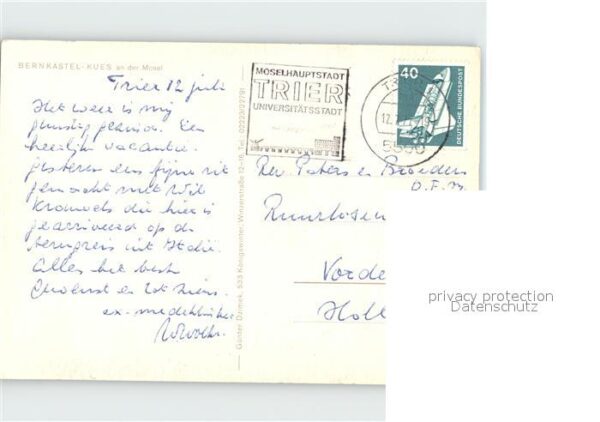 BERNKASTEL-KUES an der Mosel
Trier 12 juli
Het weer is mij
gunstig gezind. Een
heerlijke vacantie.
gisteren een fijne rit
gemaakt met Wil
die hier is
gearriveerd op de
terugreis uit Italië.
Alles het beste
en tot ziens.
ex-
Günter Dzimek, 533 Königswinter, Winzerstraße 12-16, Tel. (02223) 22791
MOSELHAUPTSTADT
TRIER
UNIVERSITÄTSSTADT
40
DEUTSCHE BUNDESPOST
Den Paters en Broeders
O.F.M.
Vorde
Holl
privacy protection
Datenschutz